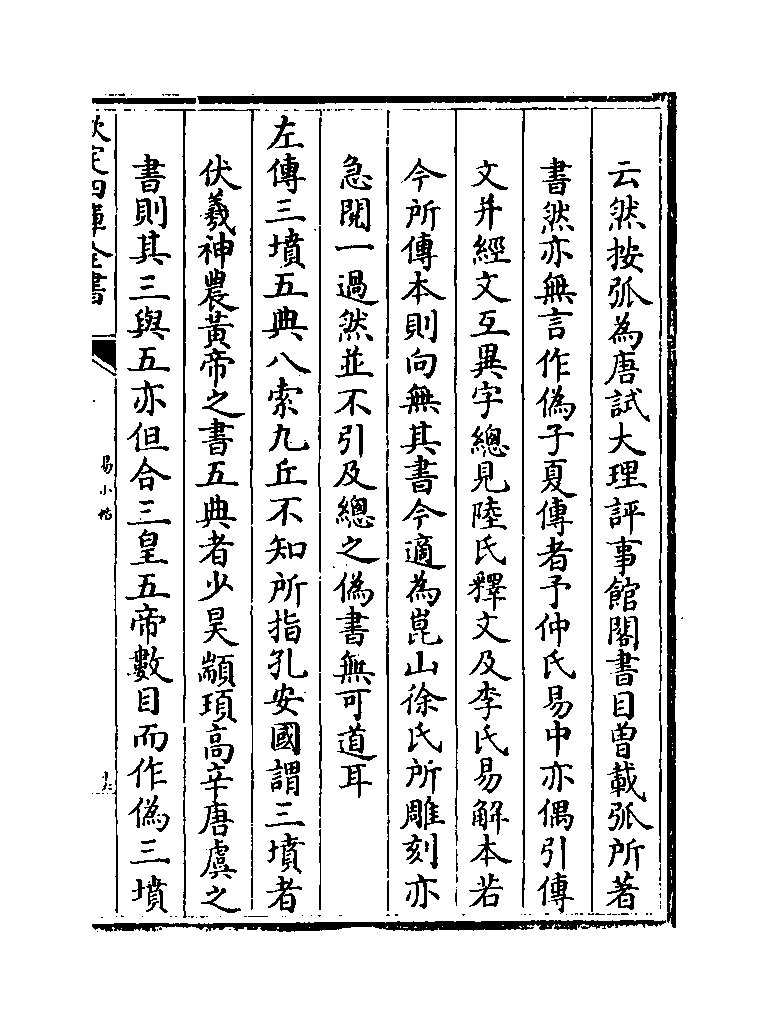 云然按弧為唐試大理評事館閣書目曽載弧所著
書然亦無言作偽子夏傳者予仲氏易中亦偶引傳
文并經文互異字總見陸氏釋文及李氏易解本若
今所傳本則向無其書今適為崑山徐氏所雕刻亦
急閱一過然並不引及總之偽書無可道耳
左傳三墳五典八索九丘不知所指孔安國謂三墳者
伏羲神農黃帝之書五典者少昊顓頊高辛唐虞之
書則其三與五亦但合三皇五帝數目而作偽三墳
欽定四庫全書
易小帖